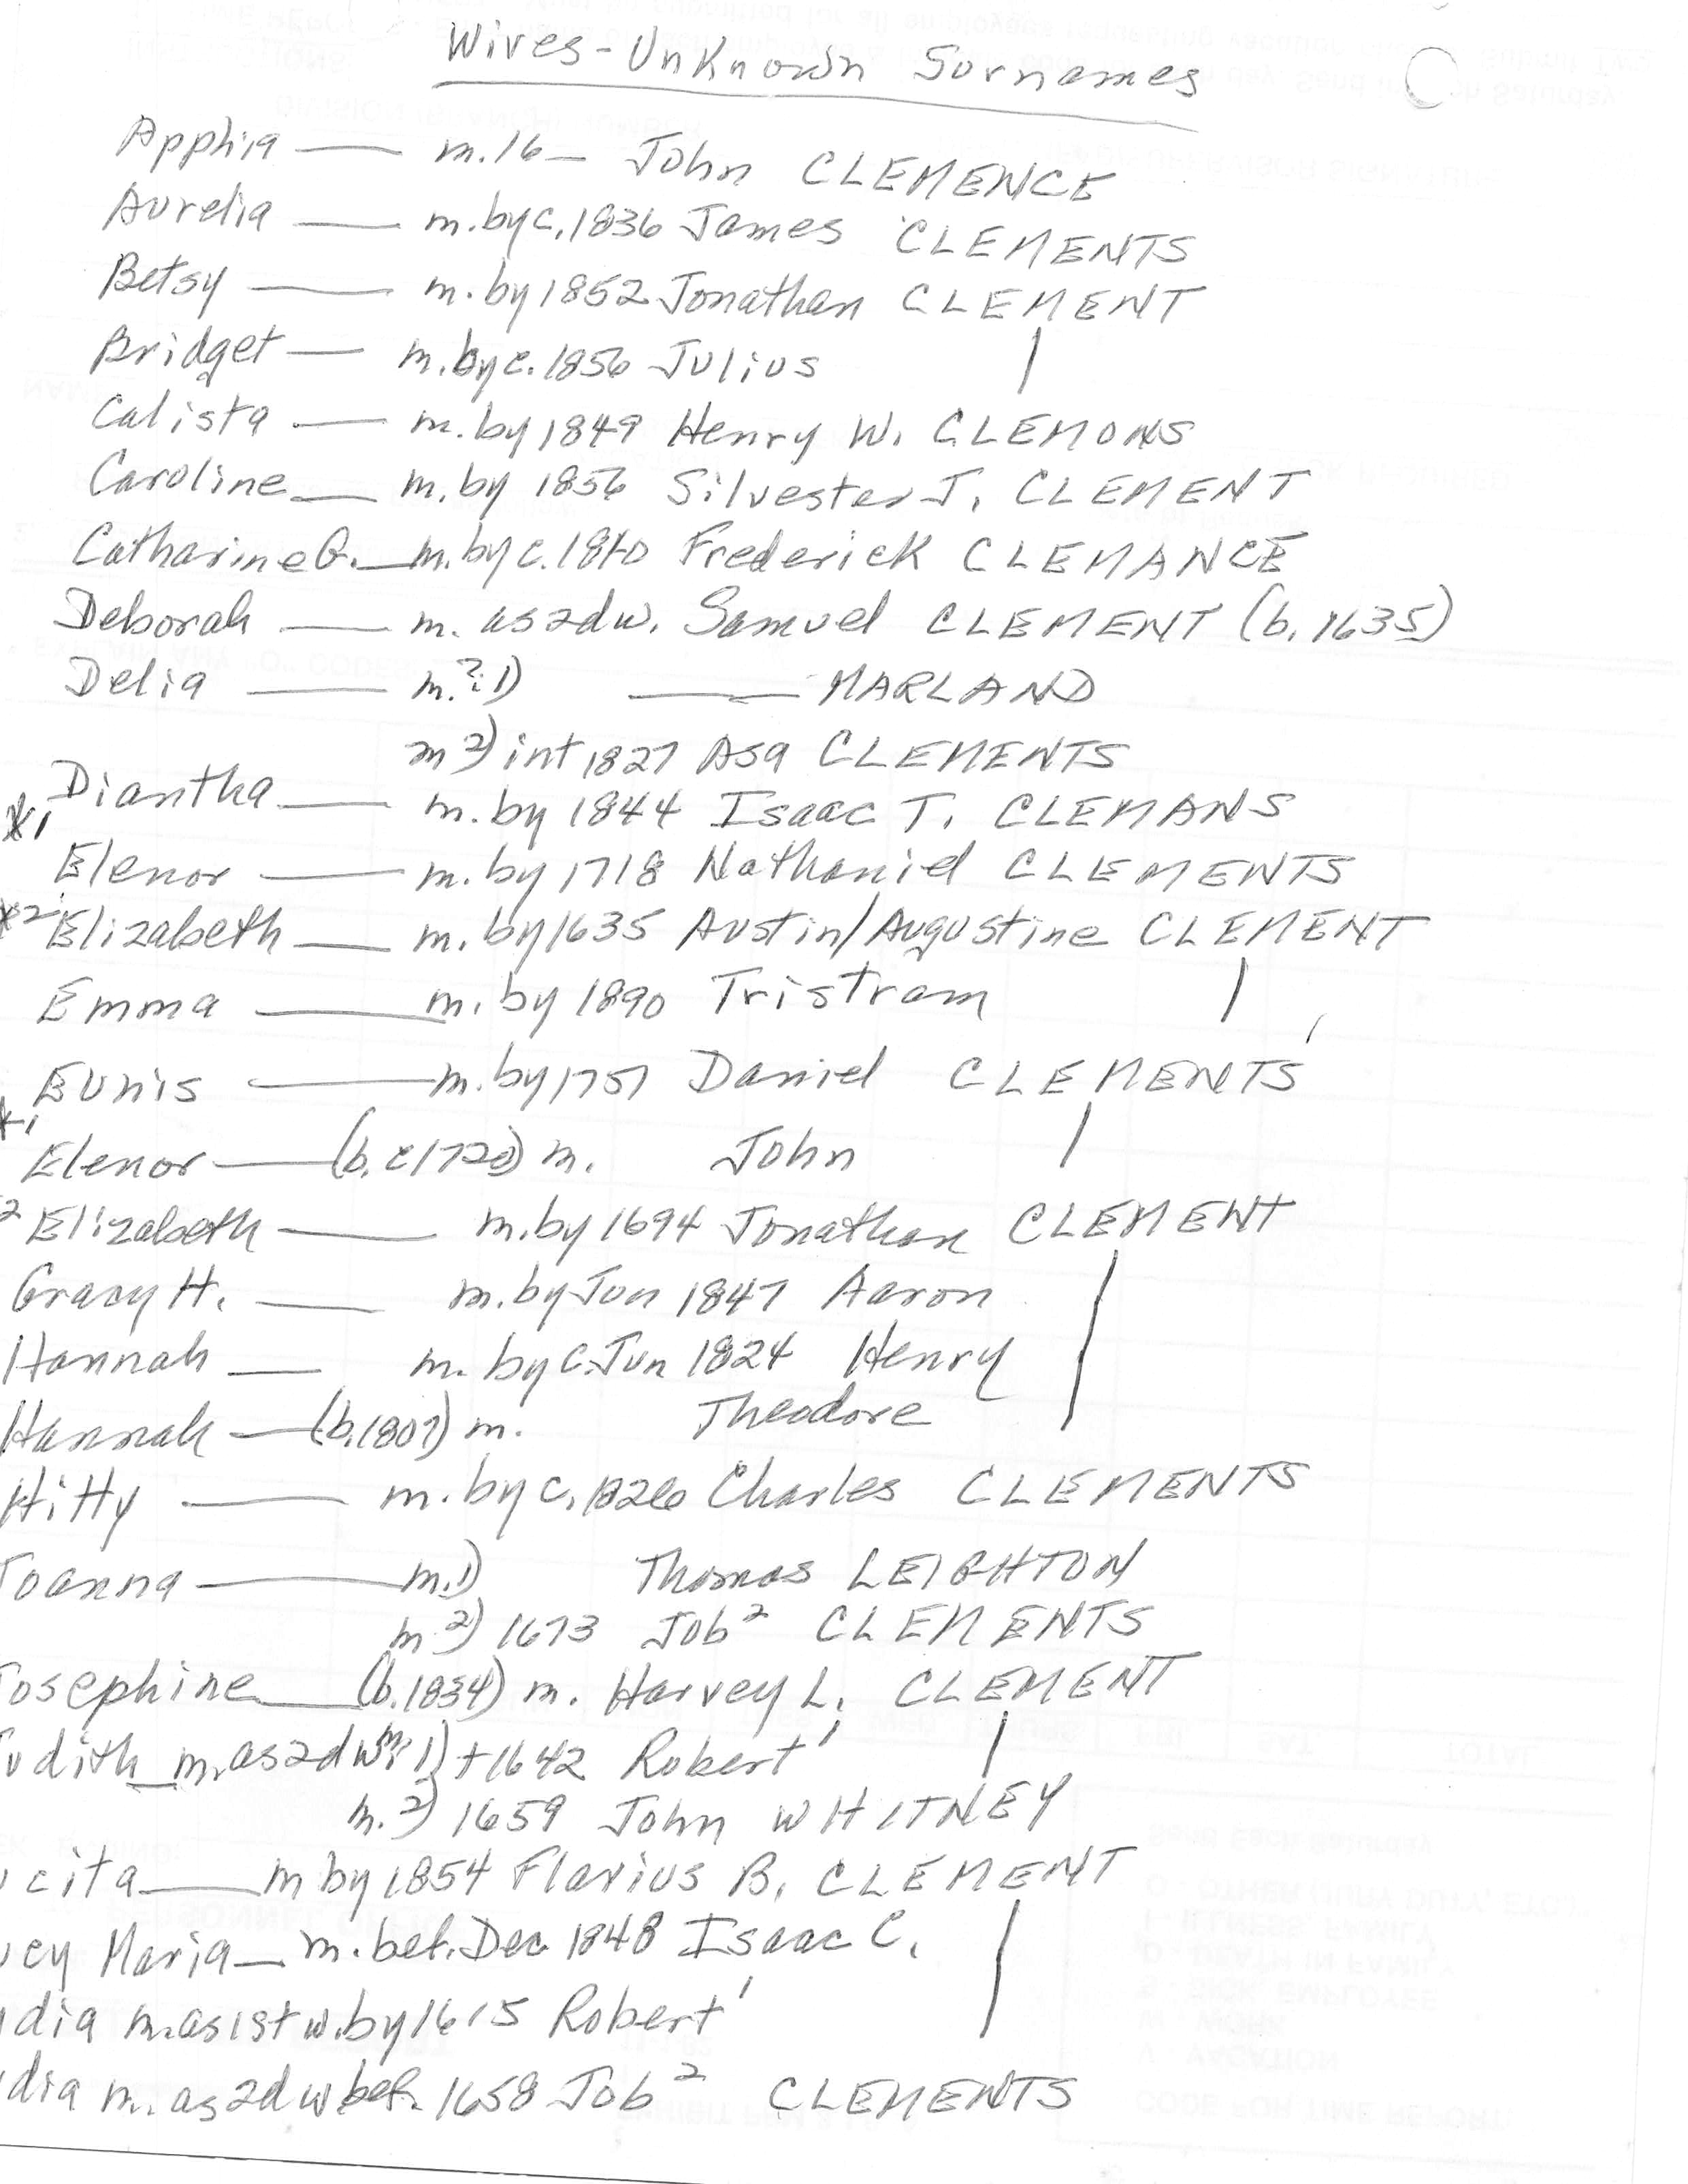 Wives - Unknown Surnames
Apphia — m. 16— John CLEMENCE
Aurelia — m. by c. 1836 James CLEMENTS
Betsy — m. by 1852 Jonathan CLEMENT
Bridget — m. by c. 1856 Julius |
Calista — m. by 1849 Henry W. CLEMONS
Caroline — m. by 1856 Silvester J. CLEMENT
Catharine G. — m. by c. Frederick CLEMANCE
Deborah — m. as 2d w. Samuel CLEMENT (b. 1635)
Delia — m.? 1) — MARLAND
m 2) int 1827 Asa CLEMENTS
Diantha — m. by 1844 Isaac T. CLEMANS
*1 Elenor — m. by 1718 Nathaniel CLEMENTS
*2 Elizabeth — m. by 1635 Austin/Augustine CLEMENT
Emma — m. by 1890 Tristram |
Eunis — m. by 1757 Daniel CLEMENTS
*1 Elenor — (b. c 1720) m. John |
2 Elizabeth — m. by 1694 Jonathan CLEMENT
Gracy H. — m. by Jun 1847 Aaron |
Hannah — m. by c. Jun 1824 Henry |
Hannah — (b. 1807) m. Theodore |
Hitty — m. by c. 1826 Charles CLEMENTS
Joanna — m. 1) Thomas LEIGHTON
m 2) 1673 Job² CLEMENTS
Josephine — (b. 1834) m. Harvey L. CLEMENT
Judith m. as 2d w. m. 1) + 1642 Robert¹ |
m. 2) 1659 John WHITNEY
ucita — m by 1854 Flavius B. CLEMENT
ucy Maria — m. bef. Dec 1848 Isaac C. |
ydia m. as 1st w. by 1615 Robert¹ |
ydia m. as 2d w bef. 1658 Job² CLEMENTS